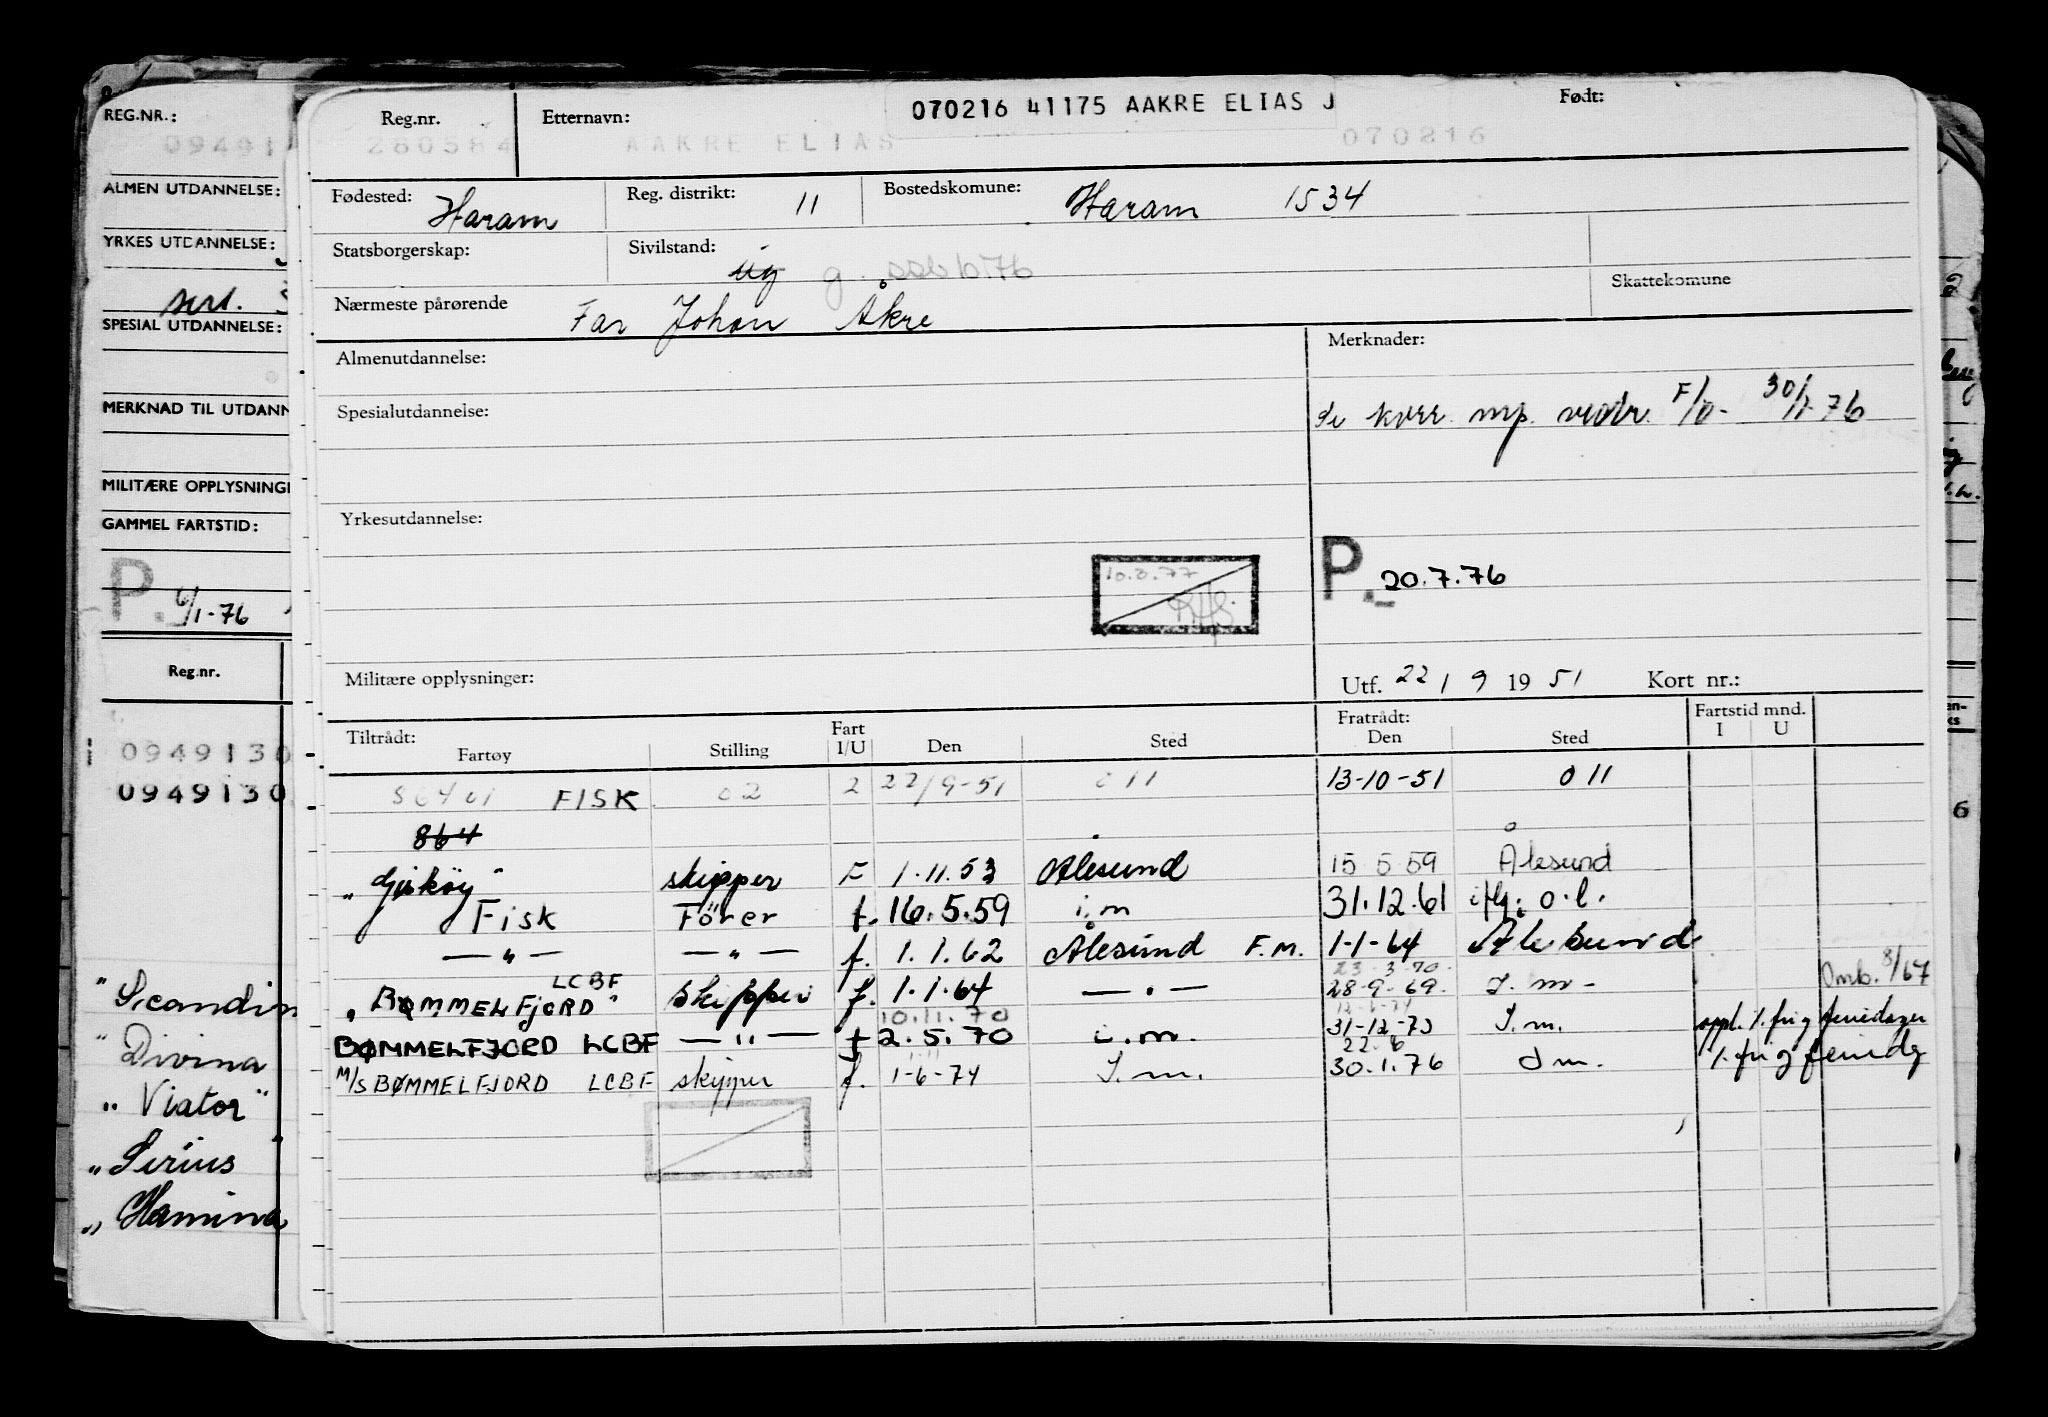 REG.NR.:
094913
ALMEN UTDANNELSE:
YRKES UTDANNELSE:
SPESIAL UTDANNELSE:
MERKNAD TIL UTDANN
MILITÆRE OPPLYSNING
GAMMEL FARTSTID:
P. 6/1-76
Reg.nr.
0949130
0949130
"Scandin
"Divina
"Viator"
"Sirius"
"Hamina
Reg.nr. Etternavn: 070216 41175 AAKRE ELIAS J Født:
280584 AAKRE ELIAS 070216
Fødested: Haram Reg. distrikt: 11 Bostedskomune: Haram 1534
Statsborgerskap: Sivilstand: ug g.
Skattekomune
Nærmeste pårørende Far Johan Åkre
Almenutdannelse: Merknader:
Spesialutdannelse: korr. 76
Yrkesutdannelse:
10.3.77
P. 20.7.76
Militære opplysninger: Utf. 22 / 9 19 51 Kort nr.:
Tiltrådt: Fart Fratrådt: Fartstid mnd.
Fartøy Stilling I/U Den Sted Den Sted I U
FISK 02 2 22/9-51 011 13-10-51 011
864
"Giskøy" skipper F 1.11.53 Ålesund 15 5 59 Ålesund
Fisk Förer f. 16.5.59 i.m 31.12.61 iflg. o.l.
— " — — " — f. 1.1.62 Ålesund F.M. 1-1-64 Ålesund
23-3-70.
LCBF
"BØMMELFJORD" Skipper f. 1.1.64 — " — 28-9-69. I.m- Omb. 8/67
10.11.70
BØMMELFJORD LCBF — " — f 2.5.70 i.m. 31-12-73 I.m. oppl. /. fri g feriedager
22.6
M/S BØMMELFJORD LCBF skipper f. 1-6-74 I.m. 30.1.76 I m. /. fri g feriedg